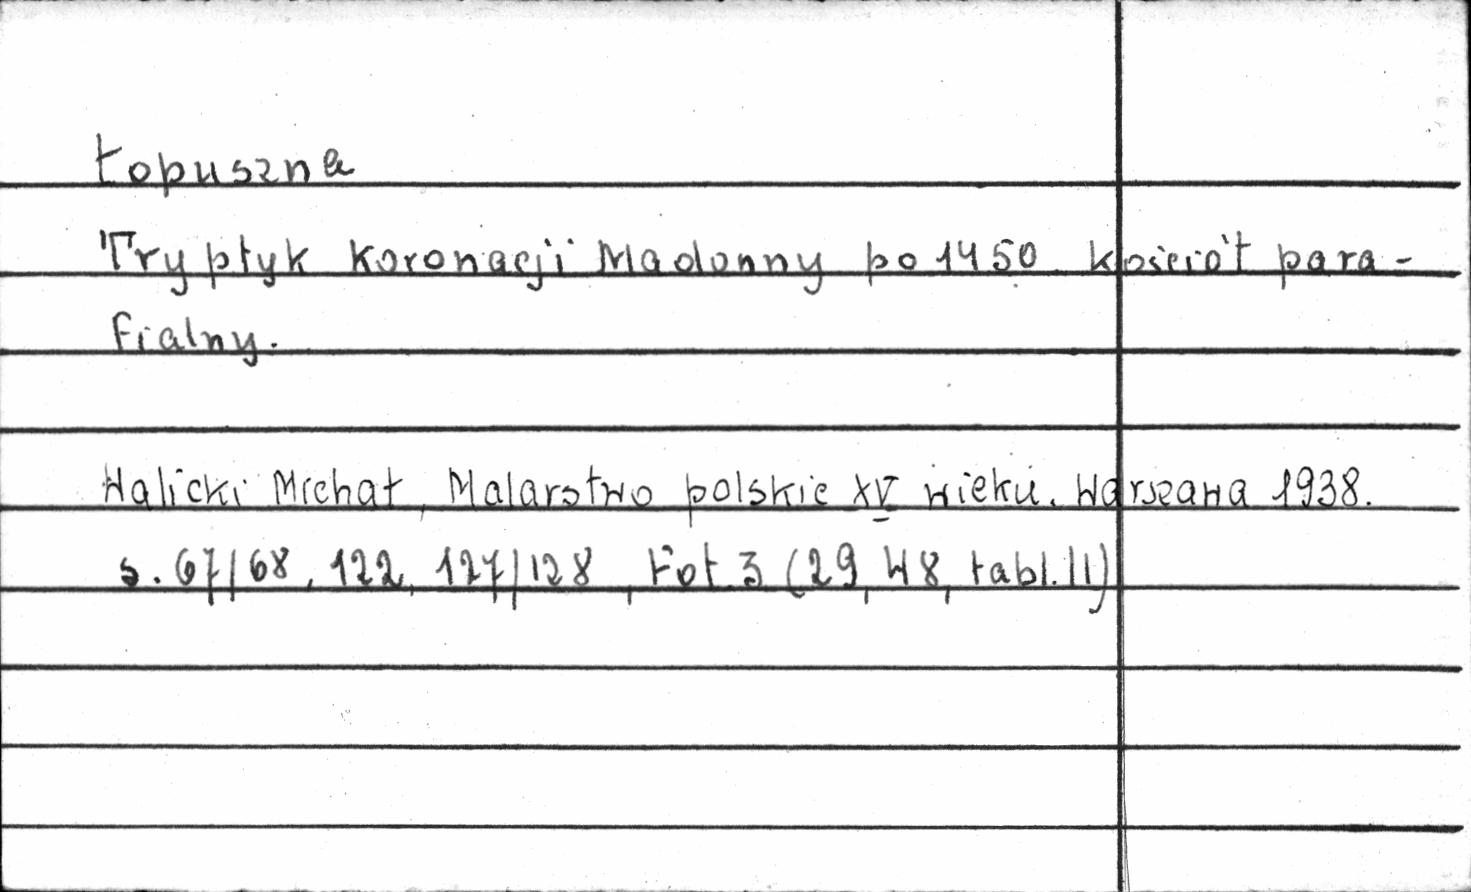 Łopuszna
Tryptyk Koronacji Madonny po 1450 kościół para-
fialny.
Walicki Michał, Malarstwo polskie XV wieku. Warszawa 1938.
s. 67/68, 122, 127/128, Fot. 3 (29, 48, tabl. II)